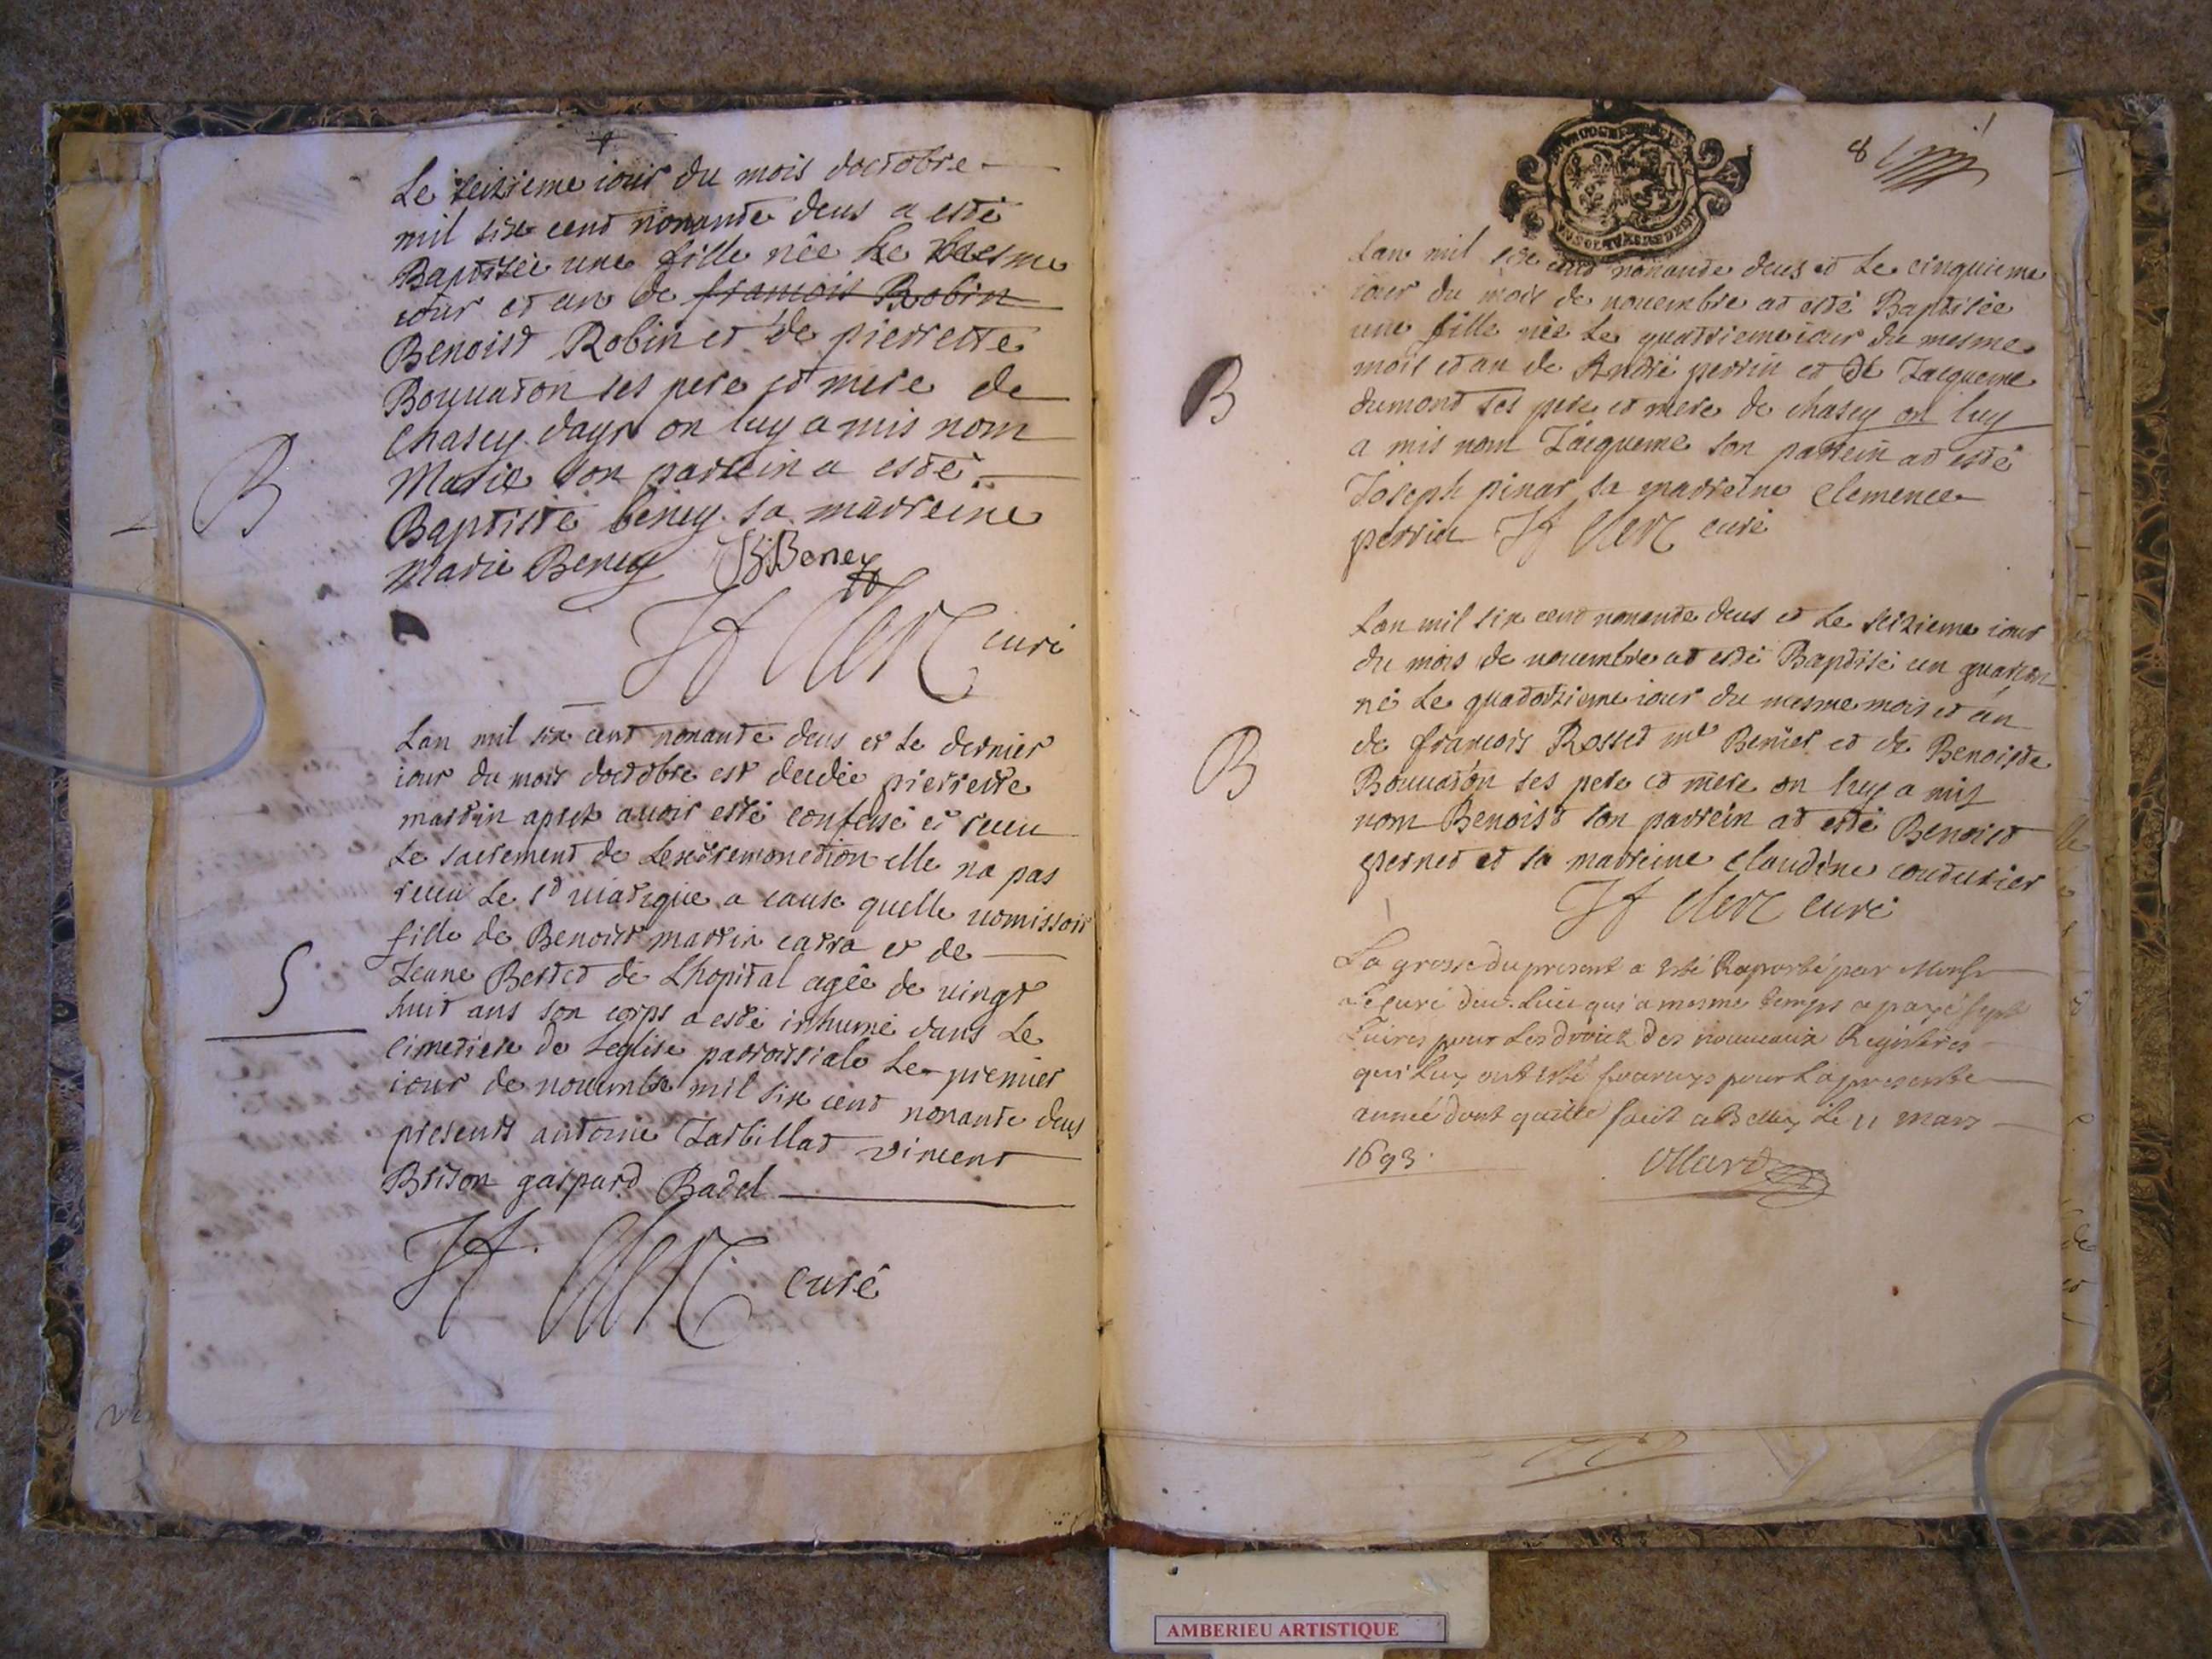 Le seizieme iour du mois doctobre
mil six cent nonante deus a esté
Baptisée une fille née le mesme
iour et an de francois Robin
Benoist Robin et de pierrette
Bouuaton ses pere et mere de
Chasey dayn on luy a mis nom
Marie son parrein a esté
B
Baptiste beney sa marreine
Marie Beney JBBeney
Jf Clerc curé
Lan mil six cent nonante deus et le dernier
iour du mois doctobre est decedée pierrette
martin apres auoir esté confessé et receu
le sacrement de Lextremonction elle na pas
receu le st viatique a cause quelle uomissoit
fille de Benoist martin carra et de
S
Jeanne Bertet de Lhopital agée de vingt
huit ans son corps a esté inhumé dans Le
cimetiere de Leglise parroissiale Le premier
iour de nouembre mil six cent nonante deus
presents antoine Jarbillat vincent
Brison gaspard Badel
Jf. Clerc curé
8
Lan mil six cent nonante deus et Le cinquieme
iour du mois de nouembre at esté Baptisée
une fille née Le quatrieme iour du mesme
mois et an de André perrin et de Jacqueme
B
dumont ses pere et mere de chasey on luy
a mis nom Jacqueme son parrein at esté
Joseph pinar sa marreine Clemence
perrin Jf Clerc curé
Lan mil six cent nonante deus et Le seizieme iour
du mois de nouembre at esté Baptisé un guarson
né Le quatorzieme iour du mesme mois et an
de francois Rosset me Benier et de Benoiste
B
Bouuaton ses pere et mere on luy a mis
nom Benoist son parrein at esté Benoist
pernet et sa marreine claudine couturier
Jf Clerc curé
La grosse du present a esté Raporté par Monsr
Le curé dud. Lieu qui a mesme temps a payé sept
Liures pour Les droits des nouueaux Registres
qui Luy ont esté fournys pour La presente
année dont quitte fait a Belley Le 11 mars
1693. Ollard
AMBERIEU ARTISTIQUE